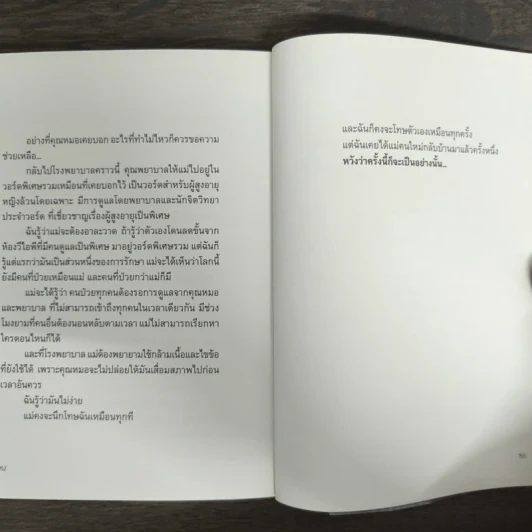 อย่างที่คุณหมอเคยบอก อะไรที่ทำไม่ไหวก็ควรขอความ
ช่วยเหลือ...
กลับไปโรงพยาบาลคราวนี้ คุณพยาบาลให้แม่ไปอยู่ใน
วอร์ดพิเศษรวมเหมือนที่เคยบอกไว้ เป็นวอร์ดสำหรับผู้สูงอายุ
หญิงล้วนโดยเฉพาะ มีการดูแลโดยพยาบาลและนักจิตวิทยา
ประจำวอร์ด ที่เชี่ยวชาญเรื่องผู้สูงอายุเป็นพิเศษ
ฉันรู้ว่าแม่จะต้องอาละวาด ถ้ารู้ว่าตัวเองโดนลดชั้นจาก
ห้องวีไอพีที่มีคนดูแลเป็นพิเศษ มาอยู่วอร์ดพิเศษรวม แต่ฉันก็
รู้แต่แรกว่ามันเป็นส่วนหนึ่งของการรักษา แม่จะได้เห็นว่าโลกนี้
ยังมีคนที่ป่วยเหมือนแม่ และคนที่ป่วยกว่าแม่ก็มี
แม่จะได้รู้ว่า คนป่วยทุกคนต้องรอการดูแลจากคุณหมอ
และพยาบาล ที่ไม่สามารถเข้าถึงทุกคนในเวลาเดียวกัน มีช่วง
โมงยามที่คนอื่นต้องนอนหลับตามเวลา แม่ไม่สามารถเรียกหา
ใครตอนไหนก็ได้
และที่โรงพยาบาล แม่ต้องพยายามใช้กล้ามเนื้อและไขข้อ
ที่ยังใช้ได้ เพราะคุณหมอจะไม่ปล่อยให้มันเสื่อมสภาพไปก่อน
เวลาอันควร
ฉันรู้ว่ามันไม่ง่าย
แม่คงจะนึกโทษฉันเหมือนทุกที
และฉันก็คงจะโทษตัวเองเหมือนทุกครั้ง
แต่ฉันเคยได้แม่คนใหม่กลับบ้านมาแล้วครั้งหนึ่ง
หวังว่าครั้งนี้ก็จะเป็นอย่างนั้น...